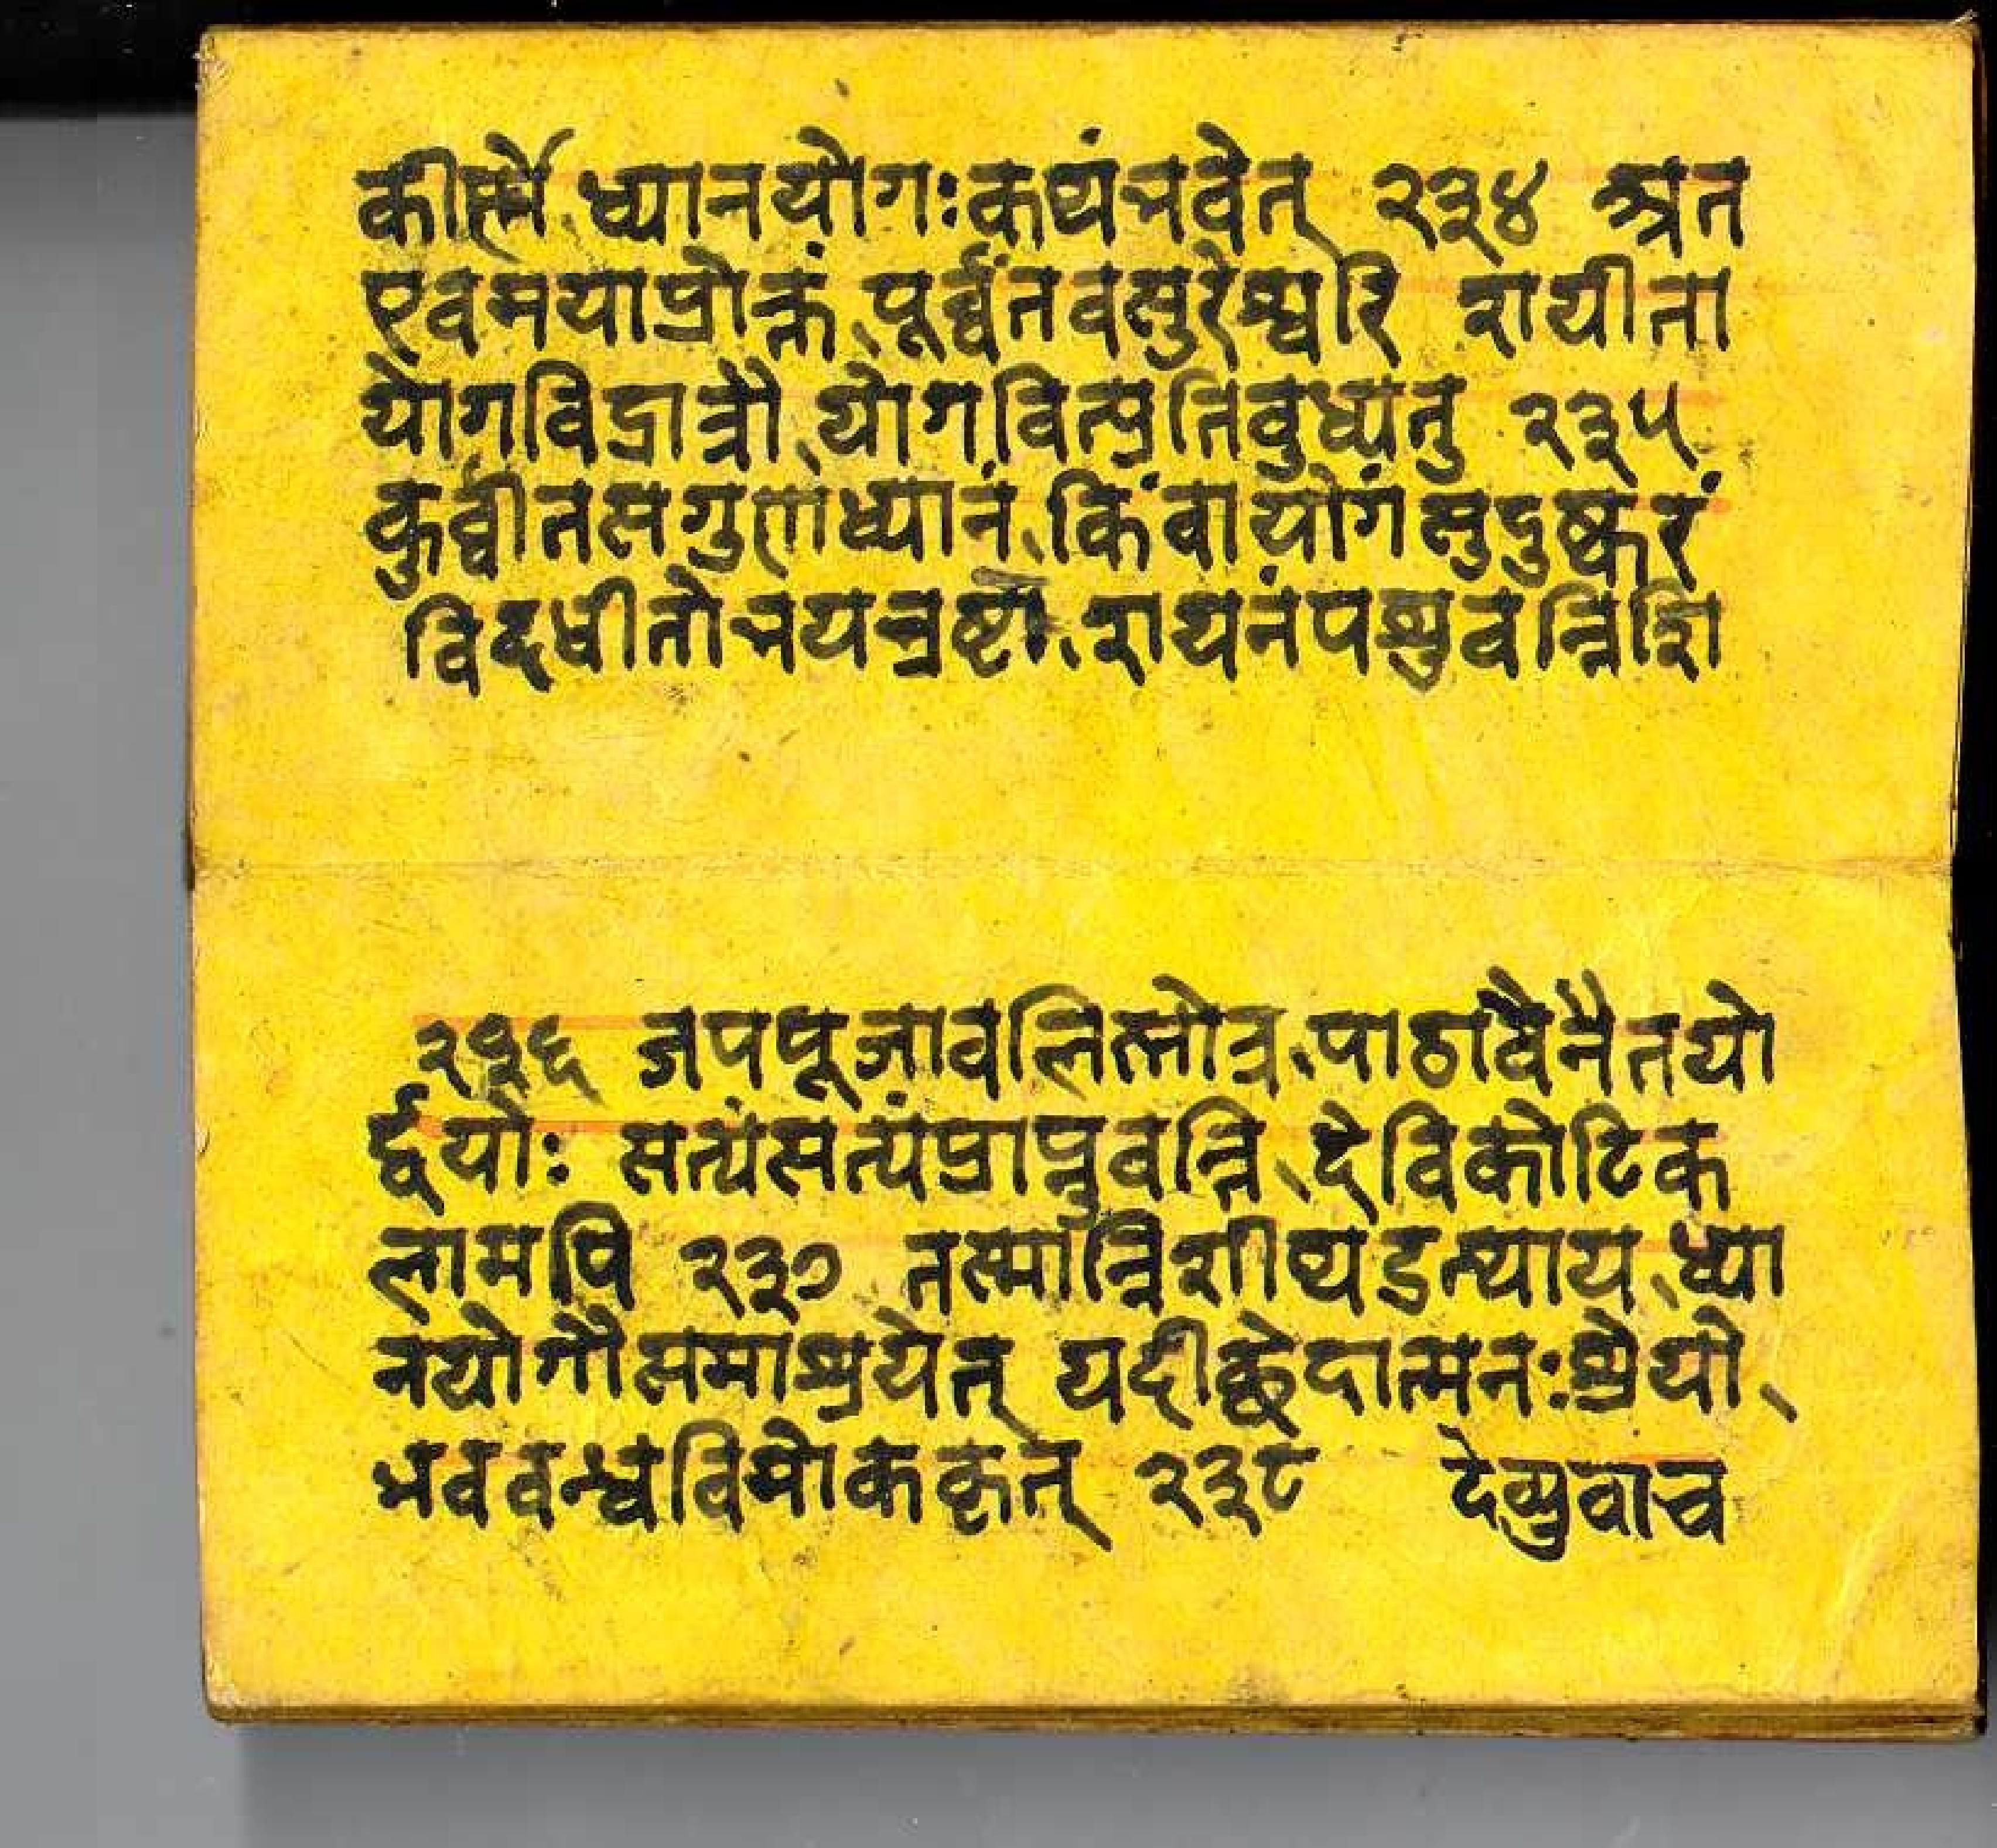 कीर्ण्णे ध्यानयोगः कथंभवेत् २३४ अत
एवमयाप्रोक्तं पूर्व्वंतवसुरेश्वरि शयीता
योगविद्रात्रौ योगवित्प्रतिबुध्यतु २३५
कुर्व्वीतसगुणंध्यानं किंवायोगंसुदुष्करं
विदधीतोभयभ्रष्टो शयनंपशुवन्निशि
२३६ जपपूजावलिस्तोत्र पाठाद्यैर्नैतयो
र्द्वयोः सत्यंसत्यंप्राप्नुवन्ति देविकोटिक
लामपि २३७ तस्मान्निशीथउत्थाय ध्या
नयोगौसमाश्रयेत् यदीछेदात्मनःश्रेयो
भवबन्धविमोककृत् २३८ देव्युवाच